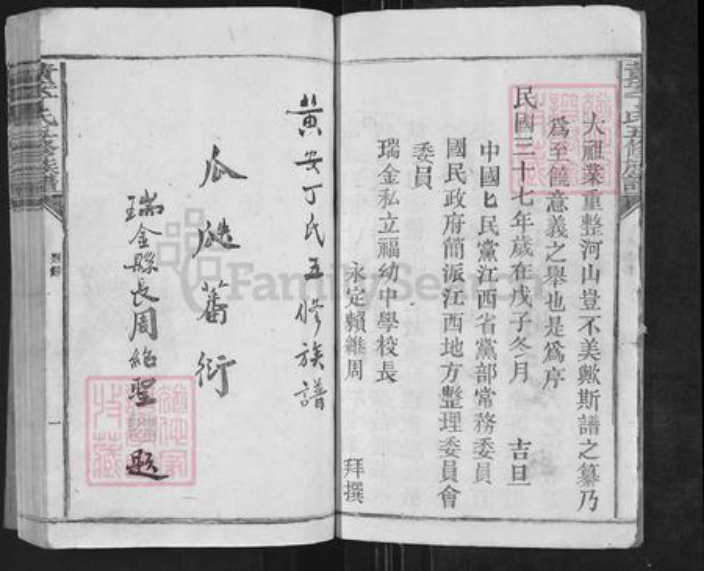 大祖業重整河山豈不美歟斯譜之纂乃
為至饒意義之舉也是為序
民國三十七年歲在戊子冬月 吉旦
中國民黨江西省黨部常務委員
國民政府簡派江西地方整理委員會
委員
瑞金私立福幼中學校長
永定賴維周 拜撰
黄安丁氏五修族譜
瓜瓞蕃衍
瑞金縣長周 聖 題
一
FamilySearch